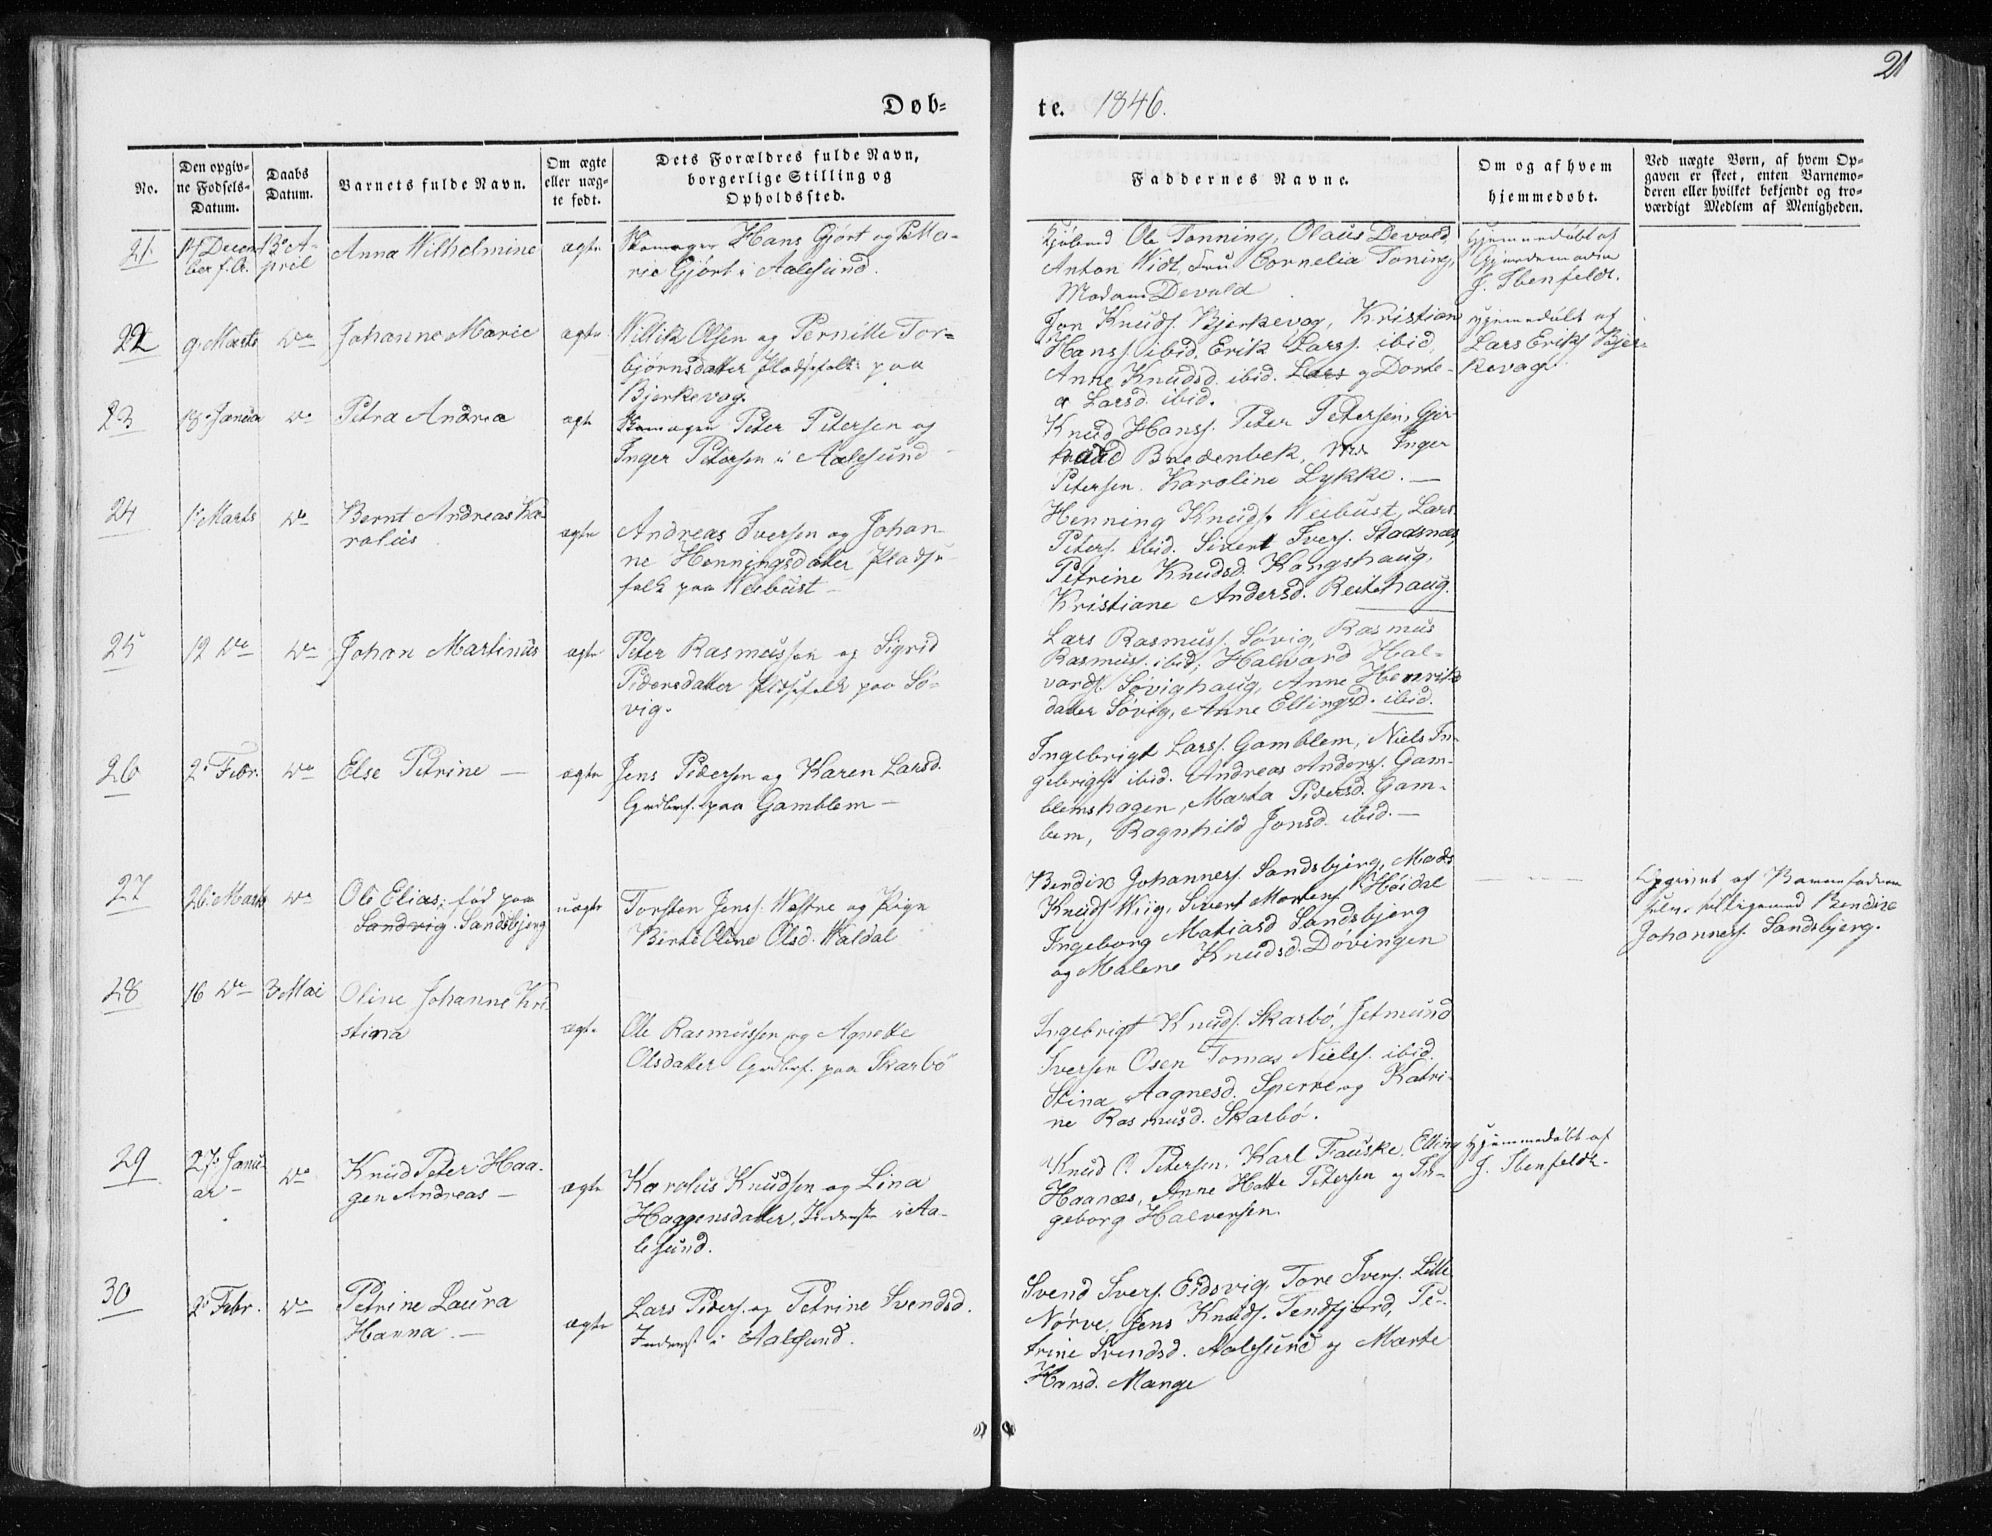 21
Døb-
te. 1846.
No.
Den opgiv-
ne Fødsels-
Datum.
Daabs
Datum.
Barnets fulde Navn.
Om ægte
eller uæg-
te født.
Dets Forældres fulde Navn,
borgerlige Stilling og
Opholdssted.
Faddernes Navne.
Om og af hvem
hjemmedøbt.
Ved uægte Børn, af hvem Op-
gaven er skeet, enten Barnemo-
deren eller hvilket bekjendt og tro-
værdigt Medlem af Menigheden.
21.
14 Decem-
ber f. A.
13de A-
pril
Anna Wilhelmine
ægte
Skomager Hans Gjørt og Ma-
rie Gjørt i Aalesund.
Ole Tonning, Olaus Devold,
Anton Widt, Fru Cornelia Toning,
Madam Devold
Hjemmedøbt af
Gjordemodre
J. Ibenfeldt.
22
9 Marts
do
Johanne Marie
ægte
Willik Olsen og Pernille Tor-
bjørnsdatter Pladsefolk paa
Bjerkevag
Jon Knuds. Bjerkevag, Kristian
Hanss. ibid. Erik Larss. ibid,
Anne Knudsd. ibid. Lars og Dorte-
a Larsd. ibid.
Hjemmedøbt af
Lars Eriks Bjer-
kevag.
23
18. Januar
do
Petra Andrea
ægte
Skomager Peter Petersen og
Inger Petersen i Aalesund
Knud Hanss. Peter Petersen, Gjer-
Bredenbek, Inger
Petersen. Karoline Lykke. —
24
1. Marts
do
Bernt Andreas Ka-
rolus
ægte
Andreas Iversen og Johan-
ne Henningsdatter Pladse-
folk paa Weibust —
Henning Knuds. Weibust, Lars
Peters. ibid. Sivert Ivers. Stadsnæs,
Petrine Knudsd. Kongshaug,
Kristiane Andersd. Reitehaug.
25
12 do
do
Johan Martinus
ægte
Peter Rasmussen og Sigrid
Pedersdatter Pladsefolk paa Sø-
vig.
Lars Rasmuss. Søvig, Rasmus
Rasmuss. ibid, Halvard Hal-
vards. Søvighaug, Anne Henriks-
datter Søvig, Anne Ellingsd. ibid.
26
2. Febr.
do
Else Petrine —
ægte
Jens Pedersen og Karen Larsd.
Grdbrf. paa Gamblem —
Ingebrigt Larss. Gamblem, Niels In-
gebrigts ibid. Andreas Anders. Gam-
blemshagen, Marta Pedersd. Gam-
blem, Ragnhild Jonsd. ibid. —
27
26. Marts
do
Ole Elias, fød paa
Sandvig. Sandsbjerg
uægte
Torsten Jenss. Westre og Pige
Birte Oline Olsd. Waldal
Bendix Johanness. Sandsbjerg, Mads
Knuds Wiig, Sivert Mortens Høidal
Ingeborg Matiasd Sandsbjerg
og Malene Knudsd. Døvingen
Opgivet af Barnefaderen
selv, tilligemed Bendix
Johanness. Sandsbjerg.
28
16 do
3 Mai
Oline Johanne Kri-
stina
ægte
Ole Rasmussen og Agnette
Olsdatter Grdbrf. paa Skarbø
Ingebrigt Knuds. Skarbø, Jetmund
Iversen Osen Tomas Nielss. ibid.
Stina Aagnesd. Sperre og Katri-
ne Rasmusd. Skarbø.
29
27. Janu-
ar —
do
Knud Peter Haa-
gen Andreas —
ægte
Karolus Knudsen og Lina
Haggensdatter, Inderste i Aa-
lesund.
Knud O. Petersen, Karl Fauske, Elling
Haanæs, Anne Hatte Petersen og In-
geborg Halversen.
Hjemmedøbt af
J. Ibenfeldt.
30
2. Febr.
do
Petrine Laura
Hanna. —
ægte
Lars Peders. og Petrine Svendsd.
Inderst i Aalesund.
Svend Ivers. Eidsvig, Tore Ivers. Lille
Nørve, Jens Knuds. Tendfjord, Pe-
trine Svendsd. Aalesund og Marte
Hansd. Mange